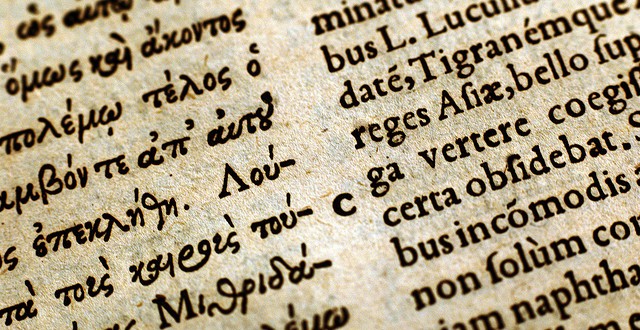 ὅμως καὶ ἄκοντος
πολέμῳ τέλος ὁ
αμβόν τε ἀπ' αὐτοῦ
ς ἐπεκλήθη. Λού-
τὰ τοὺς καιροὺς τού-
Μιθριδά-
minatus L. Lucull
bus L. Lucullu
daté, Tigranémque
reges Asiæ, bello ſup
ga vertere coegiſ
C
certa obſidebat.
bus incómodis
non ſolùm con
iam naphtha